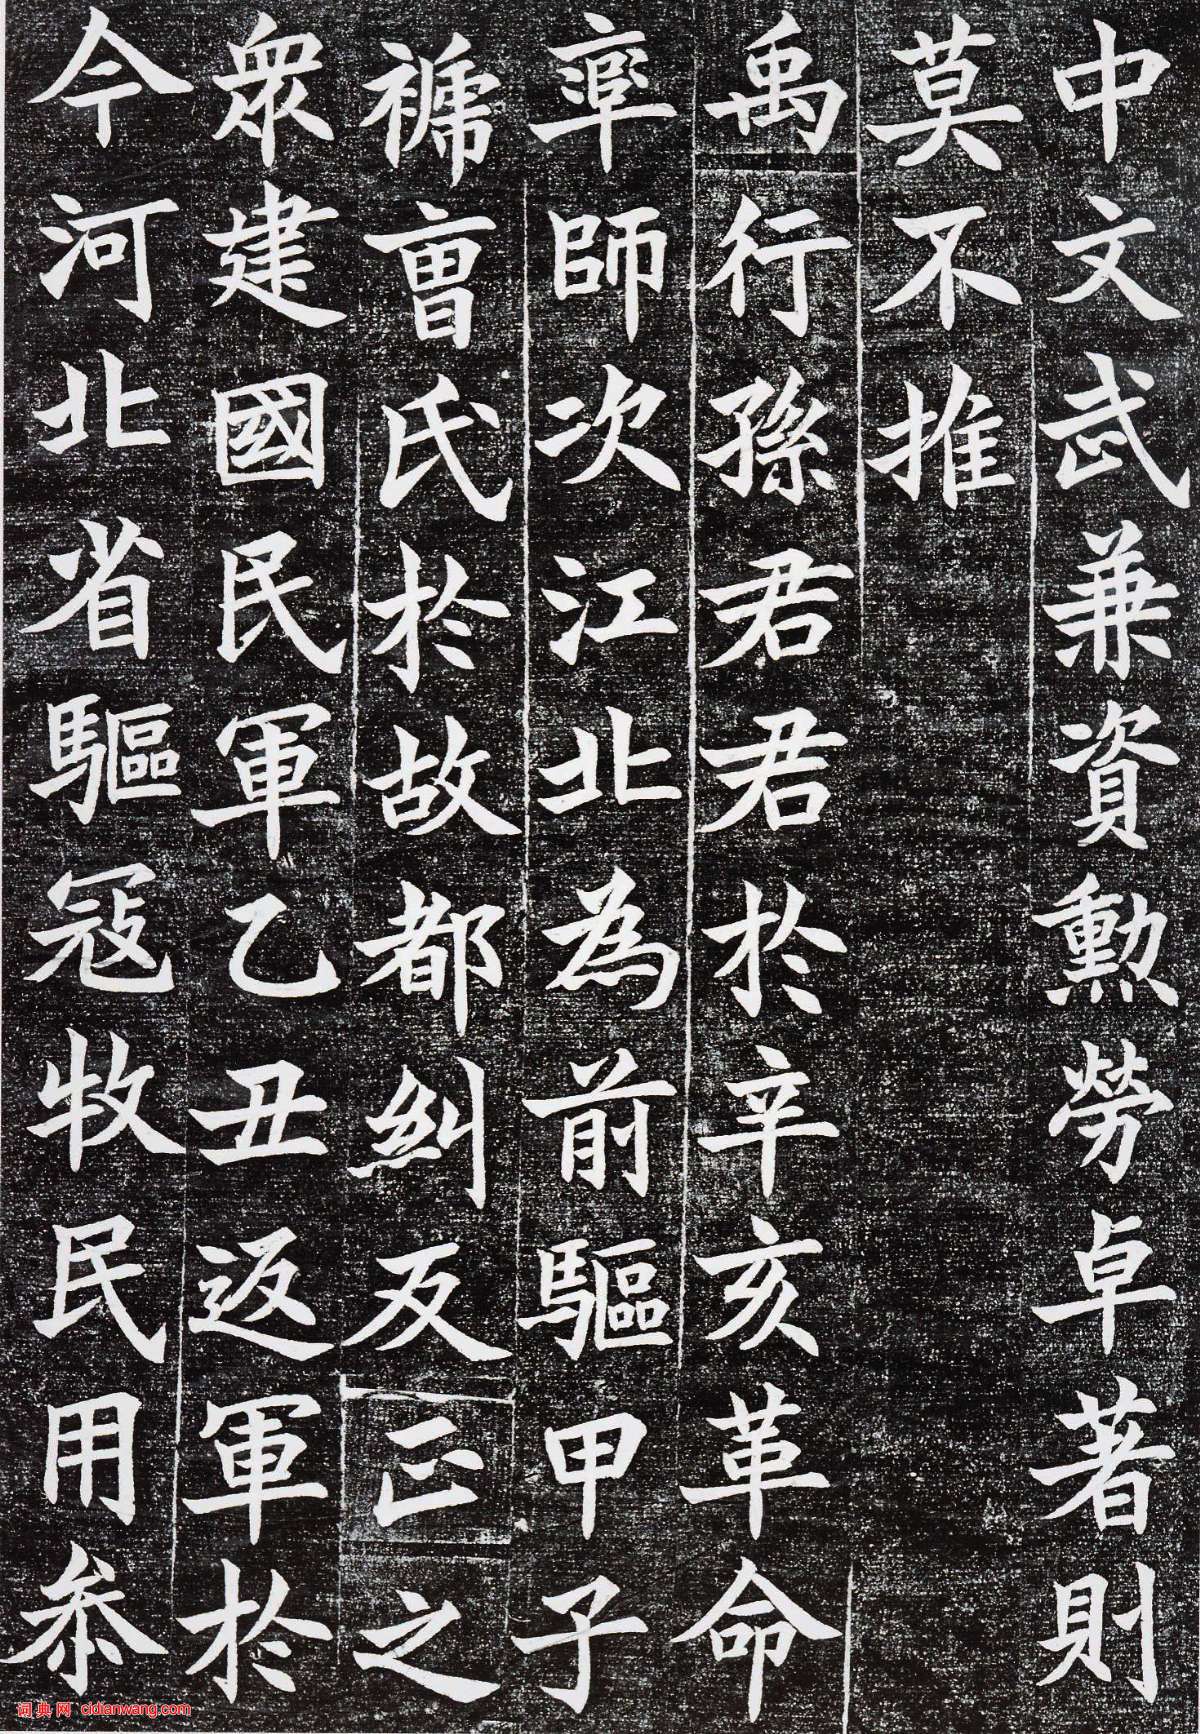 中文武兼資勳勞卓著則
莫不推
禹行孫君君於辛亥革命
率師次江北為前驅甲子
褫曹氏於故都糾反正之
眾建國民軍乙丑返軍於
今河北省驅寇牧民用叅
词典网 cidianwang.com